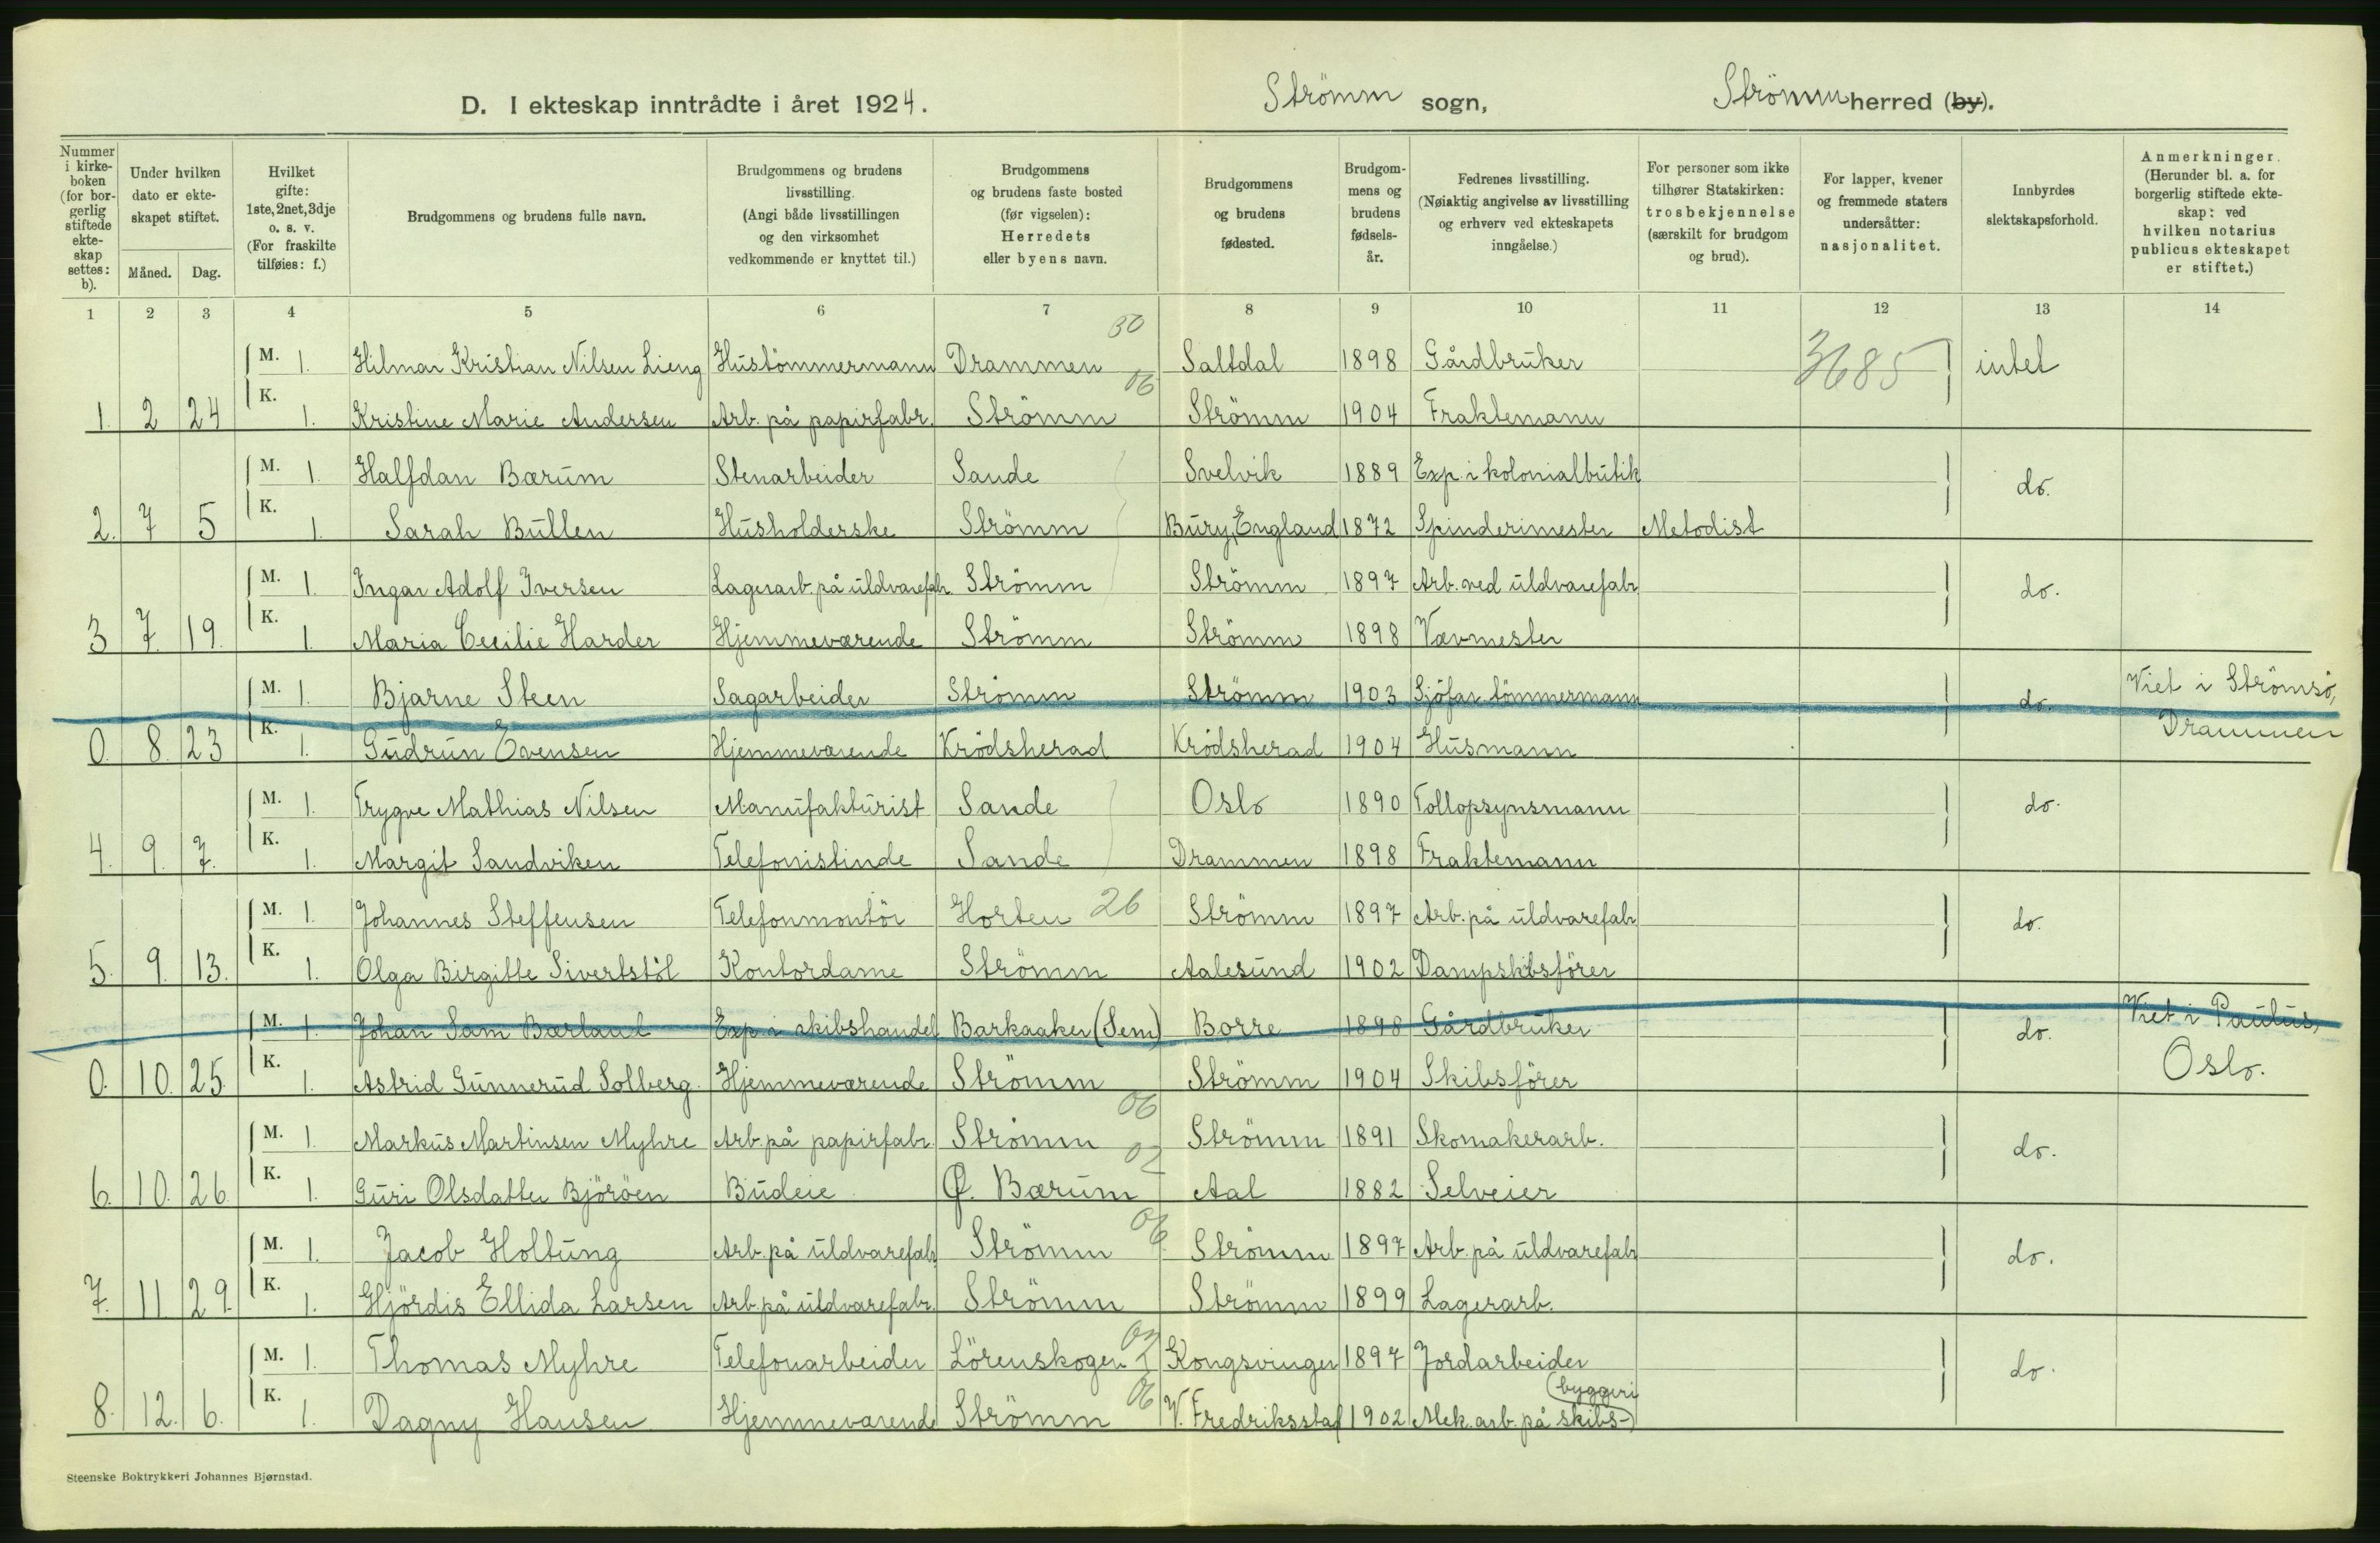 D. I ekteskap inntrådte i året 1924. Strömm sogn, Strömm herred (by).
Nummer i kirkeboken (for borgerlig stiftede ekteskap settes: b).
Under hvilken dato er ekteskapet stiftet.
Måned. Dag.
Hvilket gifte: 1ste, 2net, 3dje o. s. v. (For fraskilte tilføies: f.)
Brudgommens og brudens fulle navn.
Brudgommens og brudens livsstilling. (Angi både livsstillingen og den virksomhet vedkommende er knyttet til.)
Brudgommens og brudens faste bosted (før vigselen): Herredets eller byens navn.
Brudgommens og brudens fødested.
Brudgommens og brudens fødselsår.
Fedrenes livsstilling. (Nøiaktig angivelse av livsstilling og erhverv ved ekteskapets inngåelse.)
For personer som ikke tilhører Statskirken: trosbekjennelse (særskilt for brudgom og brud).
For lapper, kvener og fremmede staters undersåtter: nasjonalitet.
Innbyrdes slektskapsforhold.
Anmerkninger. (Herunder bl. a. for borgerlig stiftede ekteskap: ved hvilken notarius publicus ekteskapet er stiftet.)
1 2 3 4 5 6 7 8 9 10 11 12 13 14
M. 1. Hilmar Kristian Nilsen Lieng Hustömmermann Drammen 30 Saltdal 1898 Gårdbruker 3685 intet
1. 2 24 K. 1. Kristine Marie Andersen Arb. på papirfabr. Strömm 06 Strömm 1904 Fraktemann
M. 1. Halfdan Bærum Stenarbeider Sande Svelvik 1889 Exp. i kolonialbutik do.
2. 7 5 K. 1. Sarah Bullen Husholderske Strömm Bury, England 1872 Spinderimester Metodist
M. 1. Ingar Adolf Iversen Lagerarb. på uldvarefabr. Strömm Strömm 1897 Arb. ved uldvarefabr do.
3 7. 19. K. 1. Maria Cecilie Harder Hjemmeværende Strömm Strömm 1898 Vævmester
M. 1. Bjarne Steen Sagarbeider Strömm Strömm 1903 Sjöfar. tömmermann do. Viet i Strömsö,
0. 8. 23 K. 1. Gudrun Evensen Hjemmeværende Krödsherad Krödsherad 1904 Husmann Drammen
M. 1. Trygve Mathias Nilsen Manufakturist Sande Oslo 1890 Tollopsynsmann do.
4. 9. 7. K. 1. Margit Sandviken Telefonistinde Sande Drammen 1898 Fraktemann
M. 1. Johannes Steffensen Telefonmontör Horten 26 Strömm 1897 Arb. på uldvarefabr do.
5. 9. 13. K. 1. Olga Birgitte Sivertstöl Kontordame Strömm Aalesund 1902 Dampskibsförer
M. 1. Johan Sam Bærlaul Exp. i skibshandel Barkaaker (Sem) Borre 1898 Gårdbruker do. Viet i Paulus,
0. 10. 25. K. 1. Astrid Gunnerud Solberg Hjemmeværende Strömm Strömm 1904 Skibsförer Oslo.
M. 1. Markus Martinsen Myhre Arb. på papirfabr. Strömm 06 Strömm 1891 Skomakerarb. do.
6. 10. 26 K. 1. Guri Olsdatter Björöen Budeie Ø. Bærum 02 Aal 1882 Selveier
M. 1. Jacob Holtung Arb. på uldvarefabr Strömm 06 Strömm 1897 Arb. på uldvarefabr do.
7. 11 29. K. 1. Hjördis Ellida Larsen Arb. på uldvarefabr. Strömm Strömm 1899 Lagerarb.
M. 1. Thomas Myhre Telefonarbeider Lörenskogen 02 Kongsvinger 1897 Jordarbeider do.
8. 12. 6. K. 1. Dagny Hansen Hjemmeværende Strömm 06 V. Fredriksstad 1902 Mek. arb. på skibs- (byggeri
Steenske Boktrykkeri Johannes Bjørnstad.